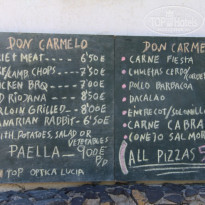 TOP HOTELS
DON CARMELO
MEAT 6'50
/LAMB CHOPS 7'50
CKEN BRQ 7'00
RIOJANA 8'50
ALOIN GRILLED 8'00
NARIAN RABBIT 6'50
ITH POTATOES, SALAD OR
VEGETABLES
PAELLA 9'00€
TOP OPTICA LUCIA
DON CARME
CARNE FIESTA
CHULETAS CERDO
POLLO BARBACOA
BACALAO
ENTRECOT/SOLOMILLO
CARNE CABRA
CONEJO SALMOR
ALL PIZZAS 5